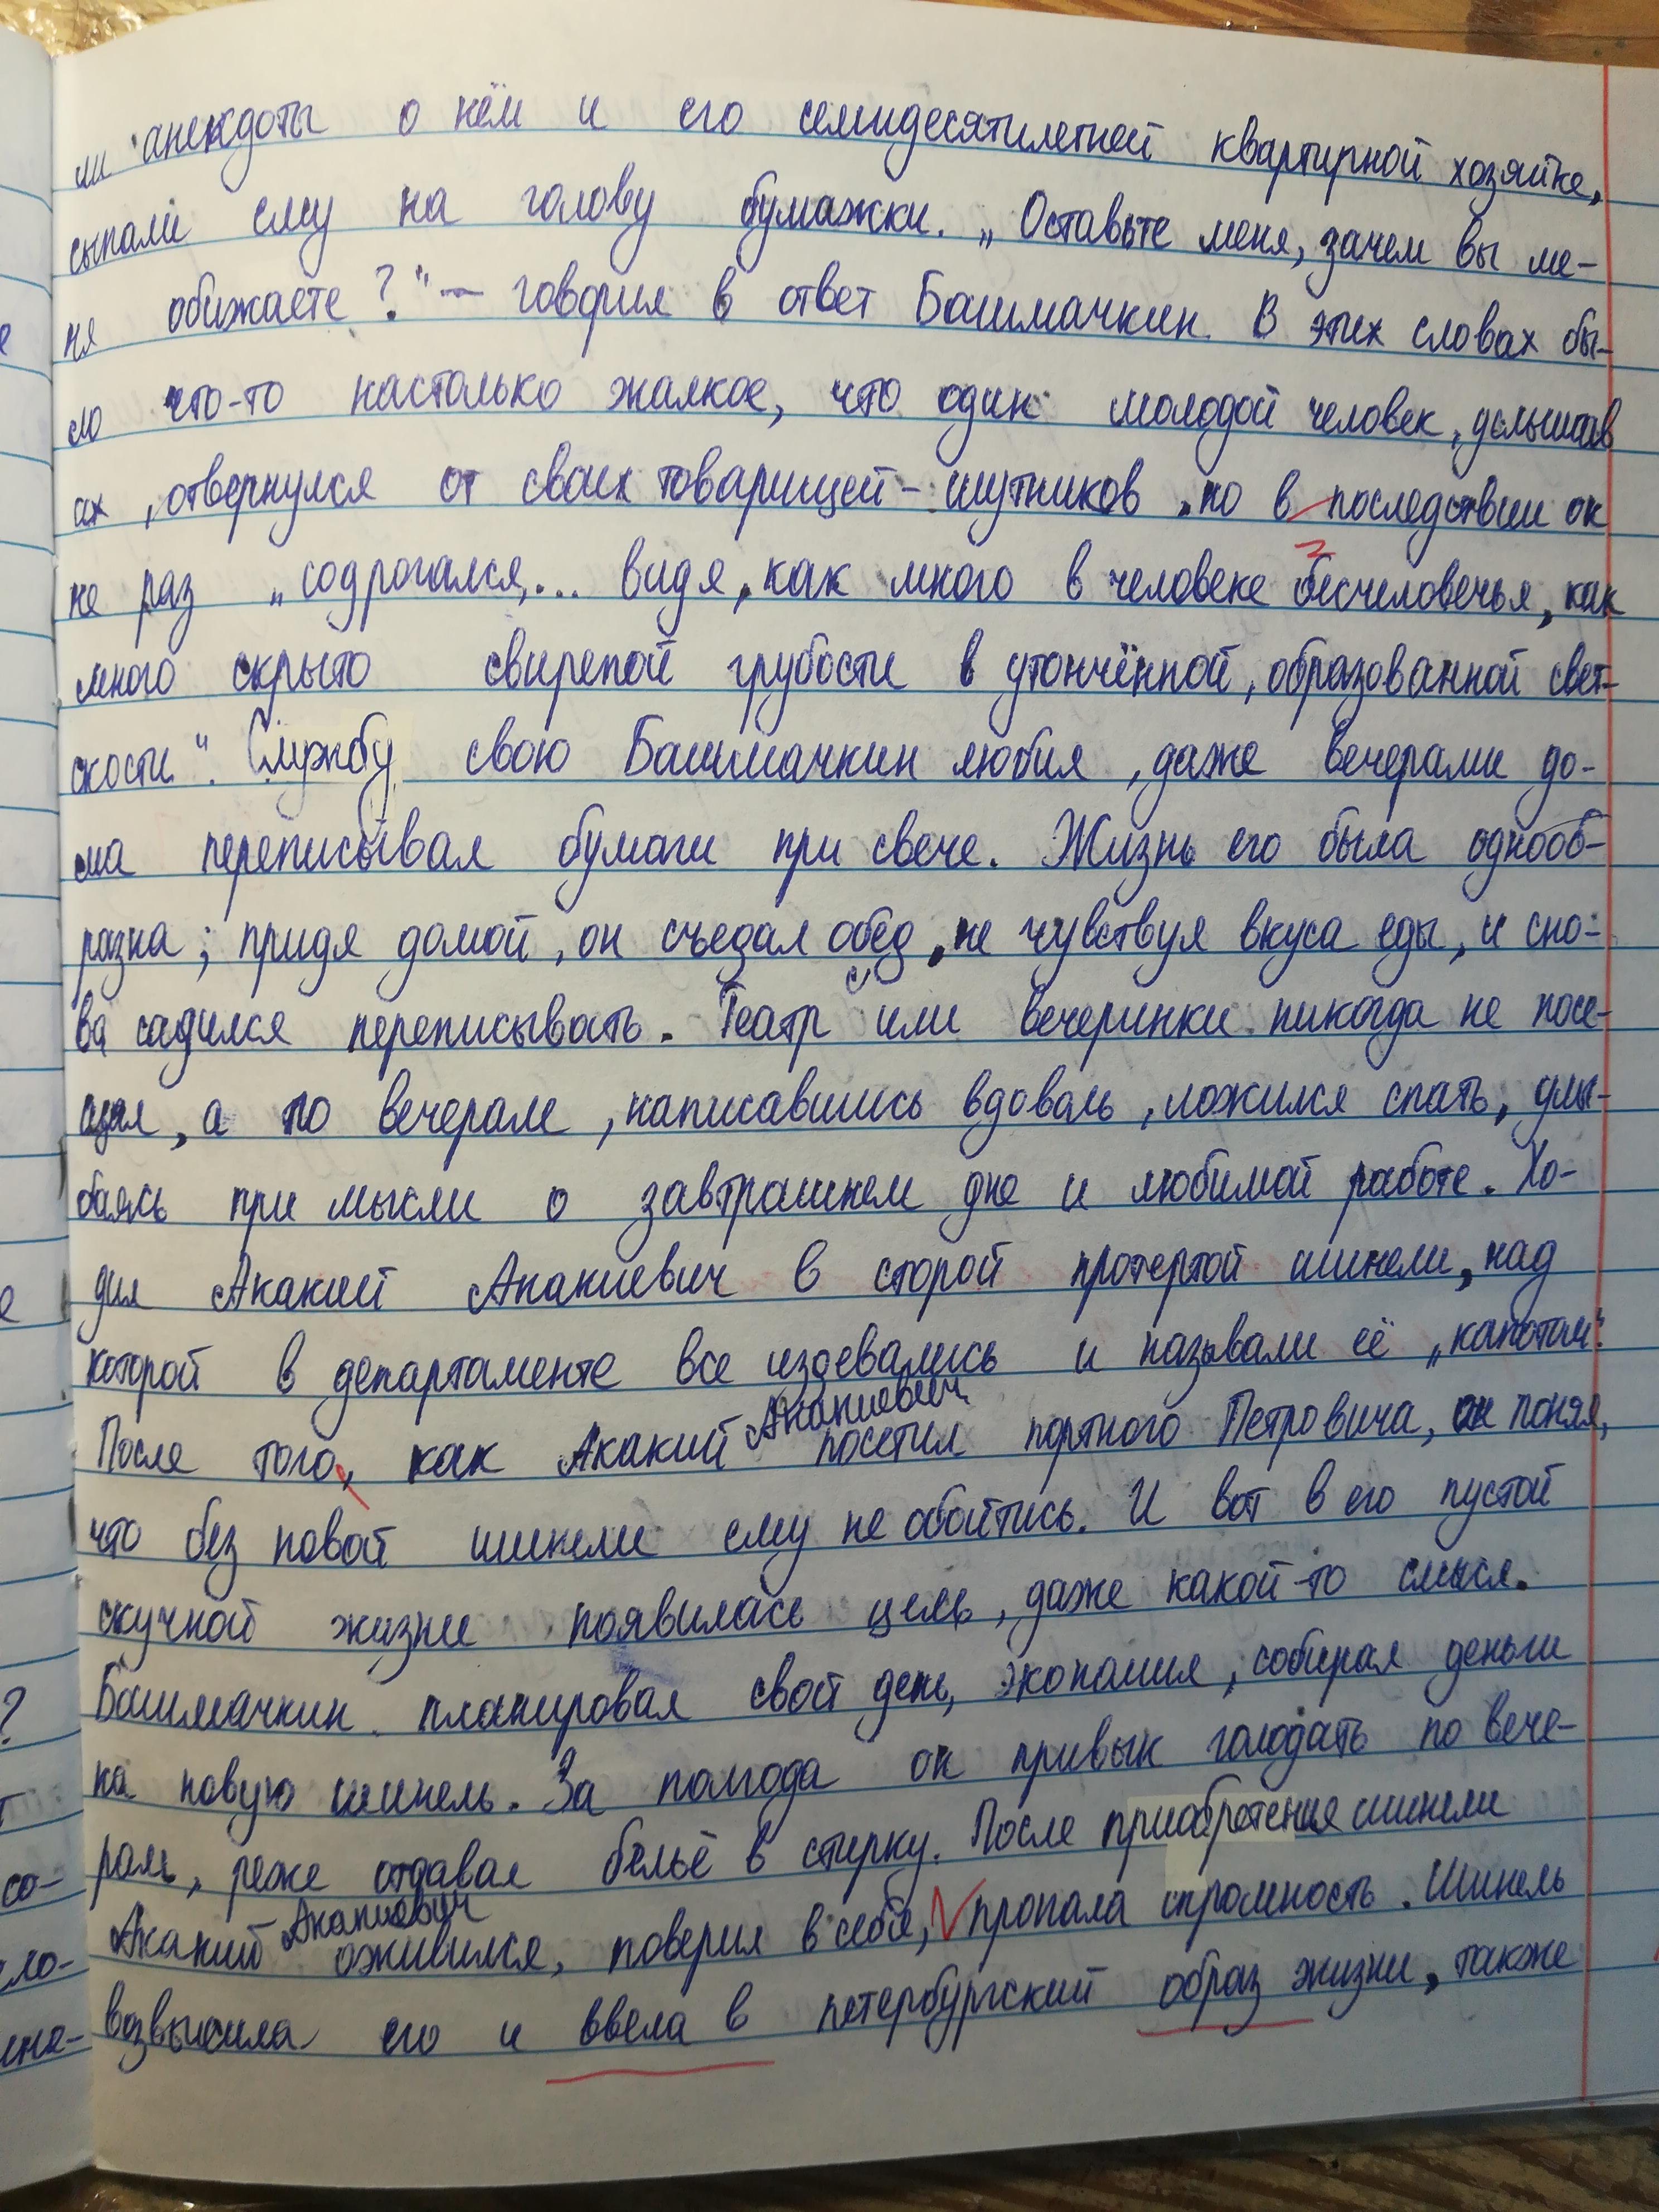 ли анекдоты о нём и его семидесятилетней квартирной хозяйке,
сыпали ему на голову бумажки. „Оставьте меня, зачем вы ме-
ня обижаете?" — говорил в ответ Башмачкин. В этих словах бы-
ло что-то настолько жалкое, что один молодой человек, услышав
их, отвернулся от своих товарищей-шутников, но в последствии он
не раз „содрогался,... видя, как много в человеке бесчеловечья, как
много скрыто свирепой грубости в утончённой, образованной свет-
скости". Службу свою Башмачкин любил, даже вечерами до-
ма переписывал бумаги при свече. Жизнь его была однооб-
разна; придя домой, он съедал обед, не чувствуя вкуса еды, и сно-
ва садился переписывать. Театр или вечеринки никогда не посе-
щал, а по вечерам, написавшись вдоволь, ложился спать, улы-
баясь при мысли о завтрашнем дне и любимой работе. Хо-
дил Акакий Акакиевич в старой протертой шинели, над
которой в департаменте все издевались и называли её „капотом".
После того, как Акакий Акакиевич посетил портного Петровича, он понял,
что без новой шинели ему не обойтись. И вот в его пустой
скучной жизни появилась цель, даже какой-то смысл.
Башмачкин планировал свой день, экономил, собирал деньги
на новую шинель. За полгода он привык голодать по вече-
рам, реже отдавал бельё в стирку. После приобретения шинели
Акакий Акакиевич оживился, поверил в себя, пропала скромность. Шинель
возвысила его и ввела в петербургский образ жизни, также